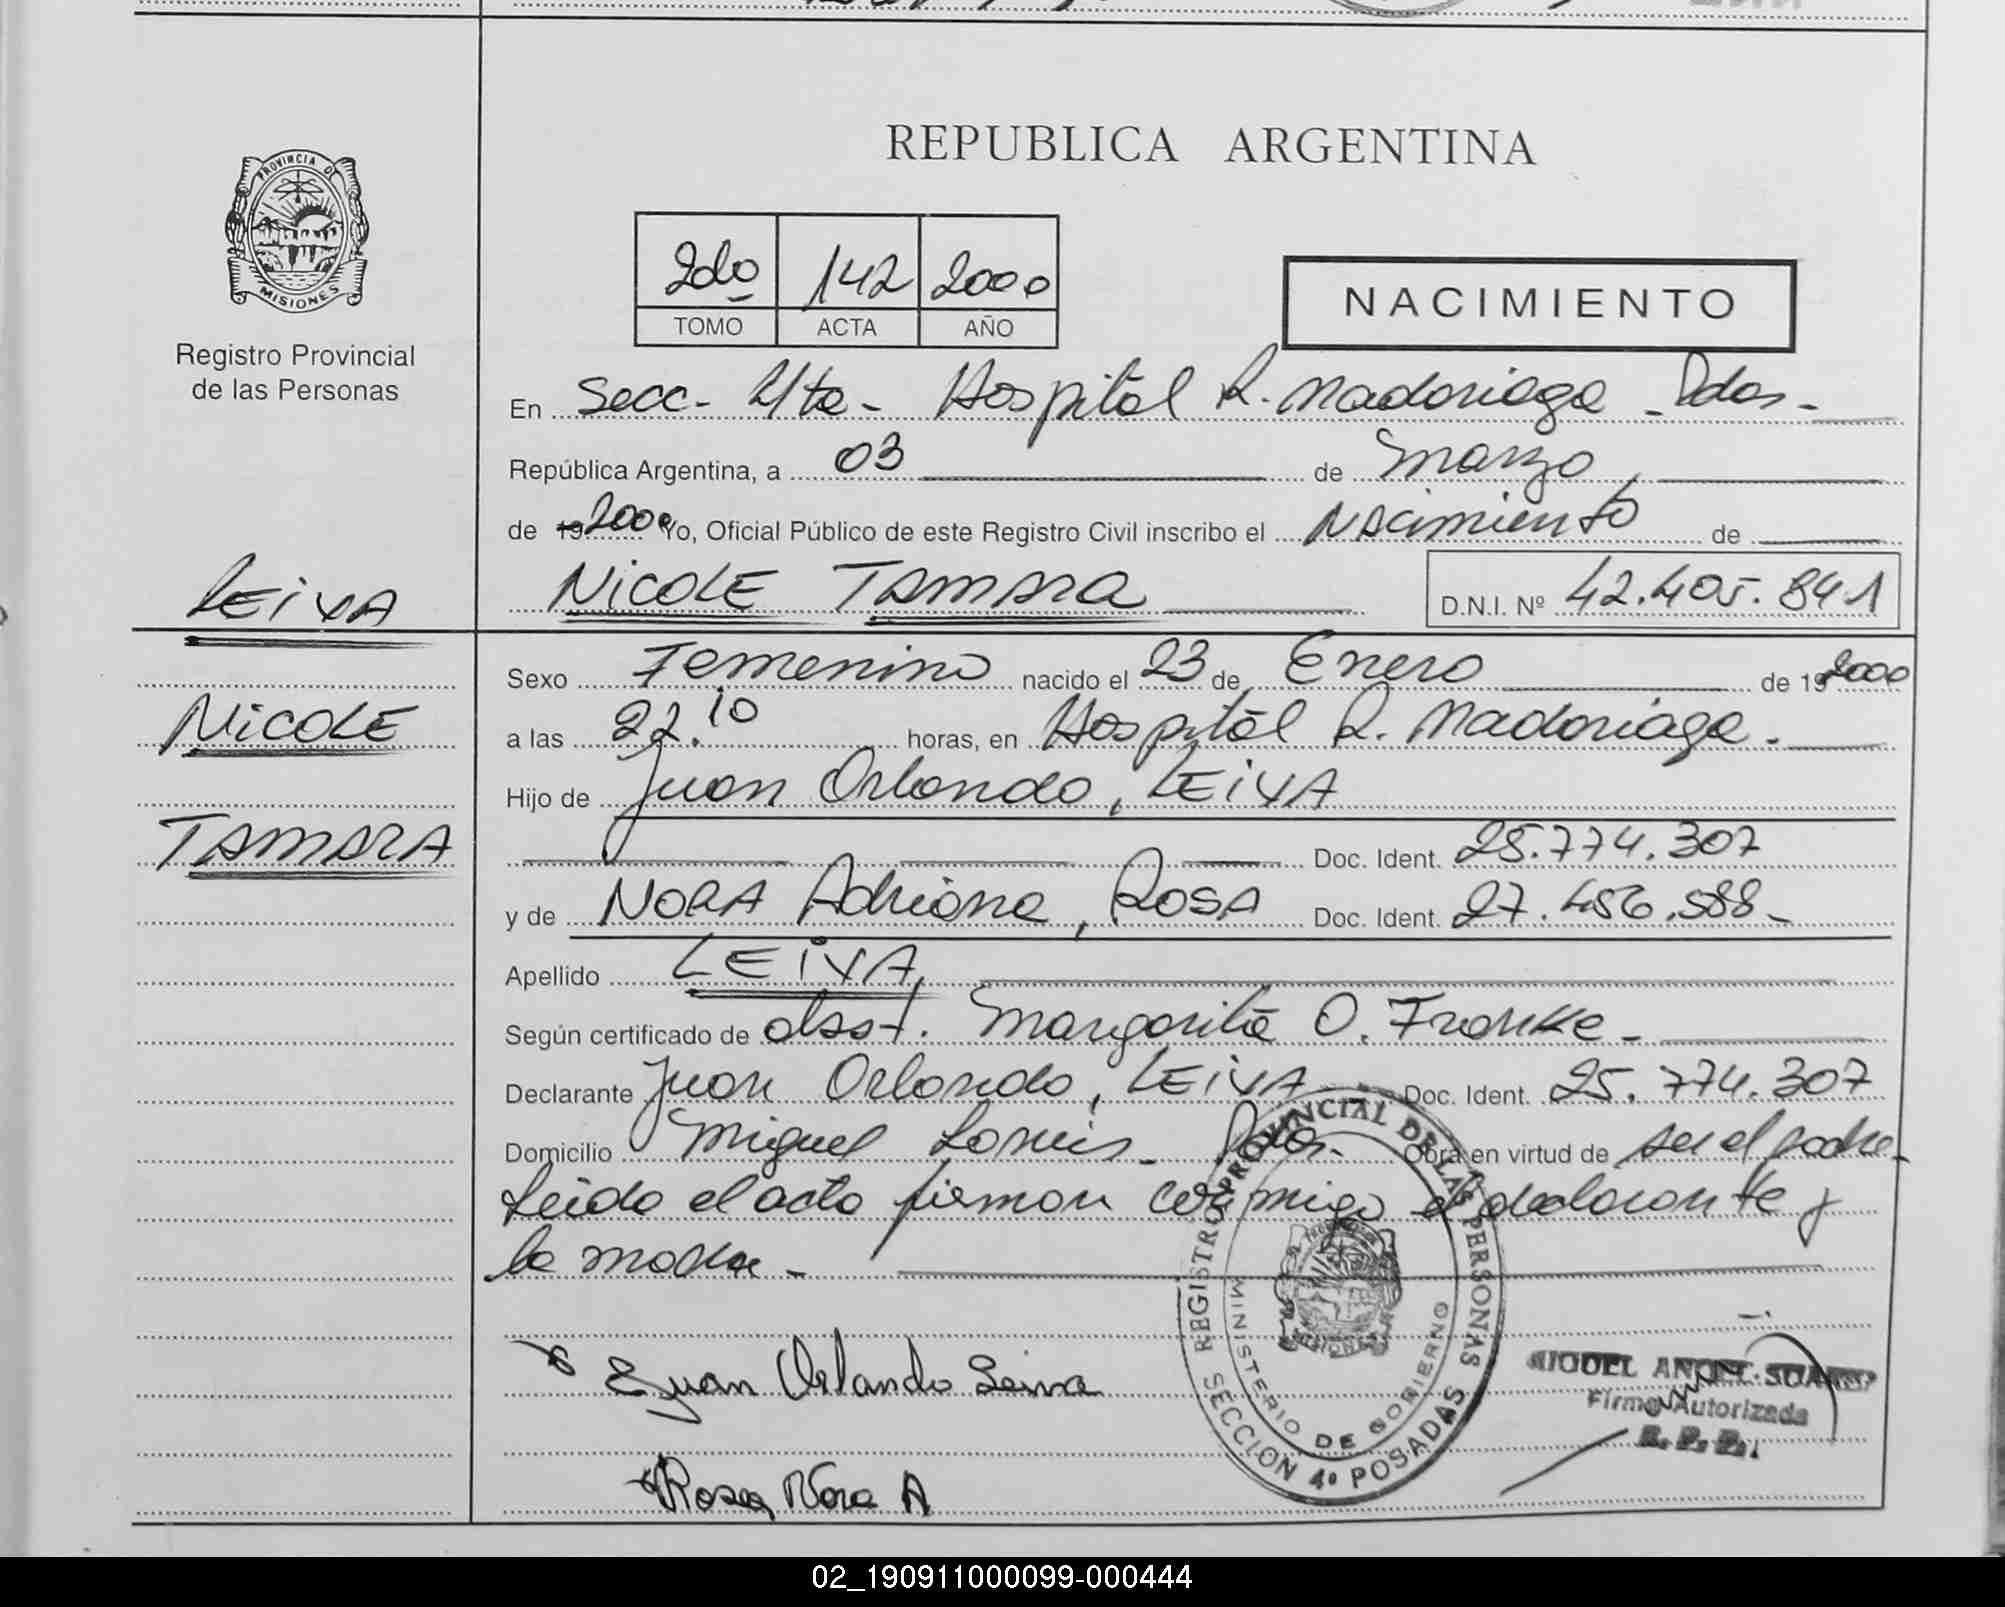 REPUBLICA ARGENTINA
PROVINCIA DE
MISIONES
Registro Provincial
de las Personas
2do 142 2000
TOMO ACTA AÑO
NACIMIENTO
En Secc. 4ta - Hospital R. Madariaga - Pdas -
República Argentina, a 03 de Marzo
de 19 2000 Yo, Oficial Público de este Registro Civil inscribo el Nacimiento de
LEIVA
NICOLE TAMARA D.N.I. Nº 42.405.841
Sexo Femenino nacido el 23 de Enero de 19 2000
NICOLE
a las 22.10 horas, en Hospital R. Madariaga.
Hijo de Juan Orlando, LEIVA
TAMARA
Doc. Ident. 25.774.307
y de NORA Adriana, ROSA Doc. Ident. 27.456.588 -
Apellido LEIVA
Según certificado de obst. Margarita O. Franke -
Declarante Juan Orlando, LEIVA Doc. Ident. 25.774.307
Domicilio Miguel Lanús - Pdas. Obra en virtud de ser el padre -
Leido el acta firman conmigo el declarante y
la madre -
REGISTRO PROVINCIAL DE LAS PERSONAS
MINISTERIO DE GOBIERNO
MISIONES
SECCION 4º POSADAS
Juan Orlando Leiva
MIGUEL ANGEL SUAREZ
Firma Autorizada
R. P. P.
Rosa Nora A
02_190911000099-000444